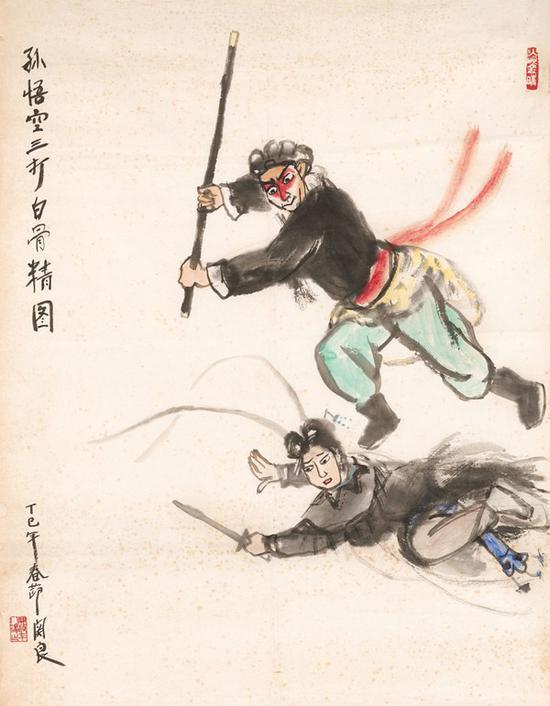 孙悟空三打白骨精图
丁巳年春节关良